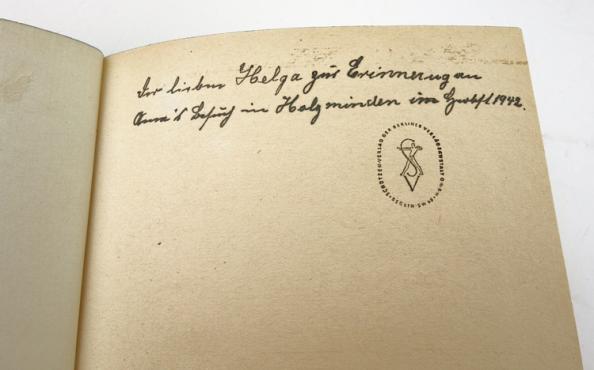 Der lieben Helga zur Erinnerug an
Oma's Besuch in Holzminden im Herbst 1942.
SCHÜTZEN-VERLAG DER BERLINER VERLAGSANSTALT G.M.B.H. BERLIN SW 68